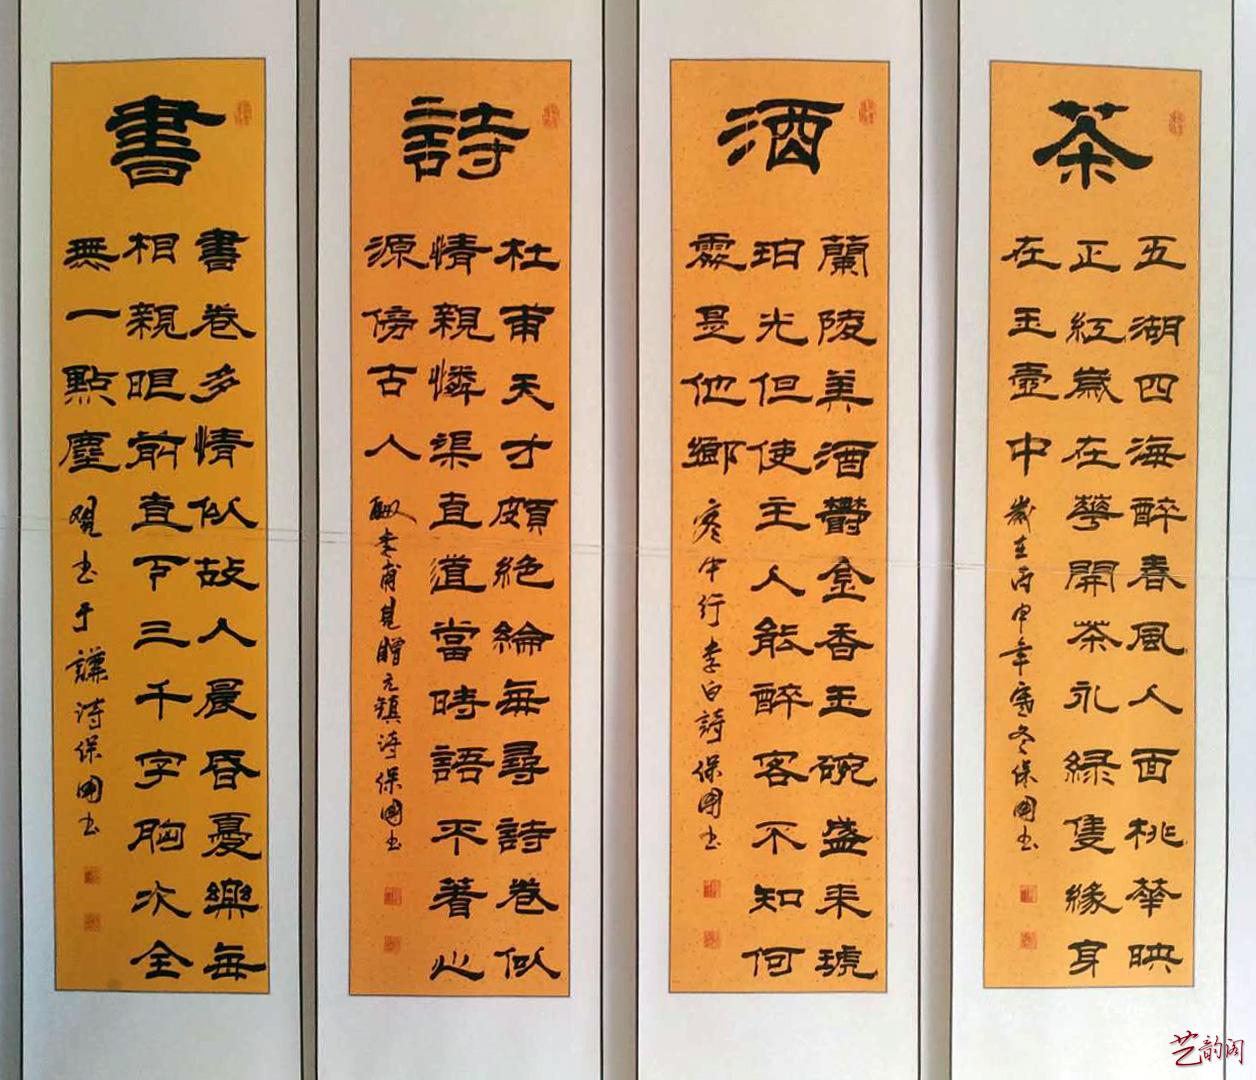 茶
五湖四海醉春風人面桃華映
正紅歲在華開茶永緑隻緣身
在玉壺中
歲在丙申年寒冬保國书
酒
蘭陵美酒鬱金香玉碗盛来琥
珀光但使主人能醉客不知何
處是他鄉
客中行李白詩保國书
詩
杜甫天才頗絕倫每尋詩卷似
情親憐渠直道當時語不著心
源傍古人
酬孝甫見贈元稹诗保國书
書
書卷多情似故人晨昏憂樂每
相親眼前直下三千字胸次全
無一點塵
觀书于謙诗保國书
艺韵阁